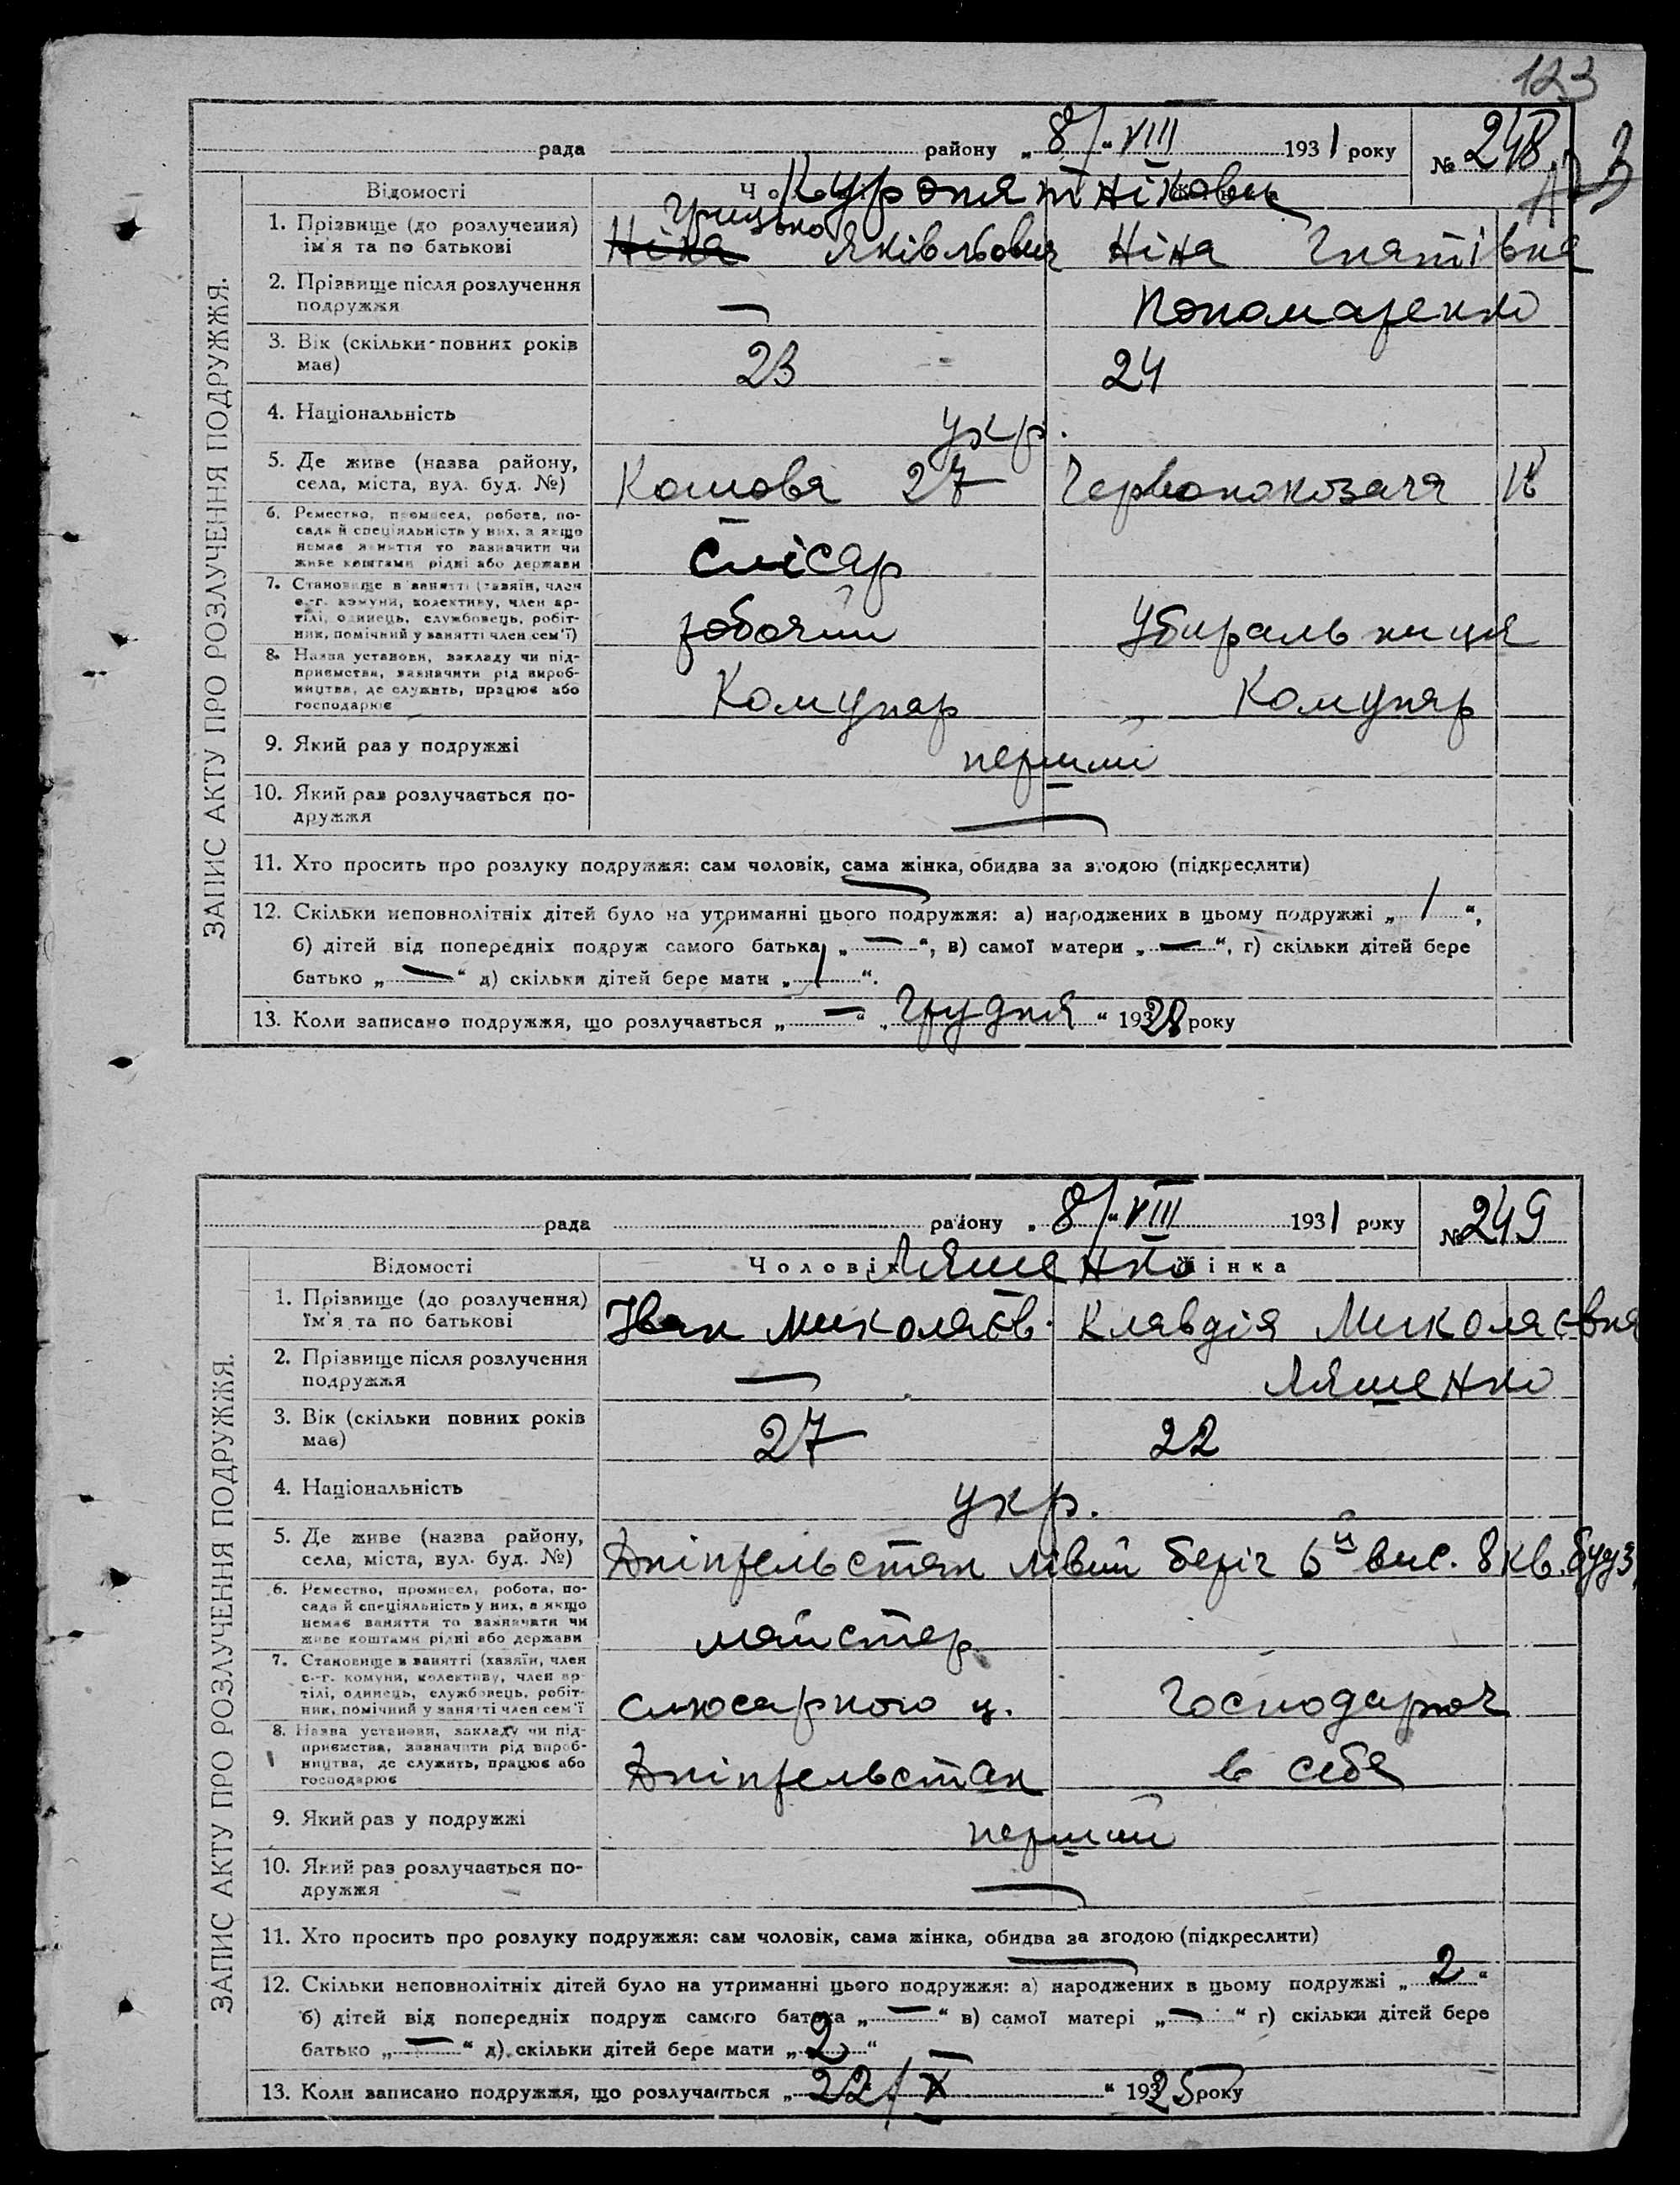 123
рада района „8/“ VIII 1931 року № 248
Відомості
Куропятнікови
Грицько
1. Прізвище (до розлучення) ім'я та по батькові Ніна Яківльович Ніна Гнатівна
2. Прізвище після розлучення подружжя — Пономаренко
3. Вік (скільки повних років має) 23 24
4. Національність укр.
5. Де живе (назва району, села, міста, вул. буд. №) Комова 27 Червонокозача
6. Ремество, промисел, робота, посада й спеціяльність у них, а якщо немає заняття то зазначити чи живе коштами рідні або держави слісар
7. Становище в занятті (хазяїн, член с.-г. комуни, колективу, член артілі, одинець, службовець, робітник, помічний у занятті член сем'ї) робочий Убиральниця
8. Назва установи, закладу чи підприємства, зазначити рід виробництва, де служить, працює або господарює Комунар Комунар
9. Який раз у подружжі перший
10. Який раз розлучається подружжя —
11. Хто просить про розлуку подружжя: сам чоловік, сама жінка, обидва за згодою (підкреслити)
12. Скільки неповнолітніх дітей було на утриманні цього подружжя: а) народжених в цьому подружжі „1“,
б) дітей від попередніх подруж самого батька „—“, в) самої матери „—“, г) скільки дітей бере
батько „—“ д) скільки дітей бере мати „1“.
13. Коли записано подружжя, що розлучається „—“ „Грудня“ 1928 року
ЗАПИС АКТУ ПРО РОЗЛУЧЕННЯ ПОДРУЖЖЯ.
рада району „8/“ VIII 1931 року № 249
Відомості Чоловік Жінка
Ляшенко
1. Прізвище (до розлучення) ім'я та по батькові Іван Миколаєв. Клавдія Миколаєвна
2. Прізвище після розлучення подружжя — Ляшенко
3. Вік (скільки повних років має) 27 22
4. Національність укр.
5. Де живе (назва району, села, міста, вул. буд. №) Дніпрельстан лівий беріг 6й вис. 8 кв. буд 3
6. Ремество, промисел, робота, посада й спеціяльність у них, а якщо немає заняття то зазначити чи живе коштами рідні або держави майстер
7. Становище в занятті (хазяїн, член с.-г. комуни, колективу, член артілі, одинець, службовець, робітник, помічний у занятті член сем'ї слюсарного ц. Господарюч
8. Назва установи, закладу чи підприємства, зазначити рід виробництва, де служить, працює або господарює Дніпрельстан в себя
9. Який раз у подружжі перший
10. Який раз розлучається подружжя —
11. Хто просить про розлуку подружжя: сам чоловік, сама жінка, обидва за згодою (підкреслити)
12. Скільки неповнолітніх дітей було на утриманні цього подружжя: а) народжених в цьому подружжі „2“
б) дітей від попередніх подруж самого батька „—“ в) самої матері „—“ г) скільки дітей бере
батько „—“ д) скільки дітей бере мати „2“
13. Коли записано подружжя, що розлучається „22/X“ 1925 року
ЗАПИС АКТУ ПРО РОЗЛУЧЕННЯ ПОДРУЖЖЯ.